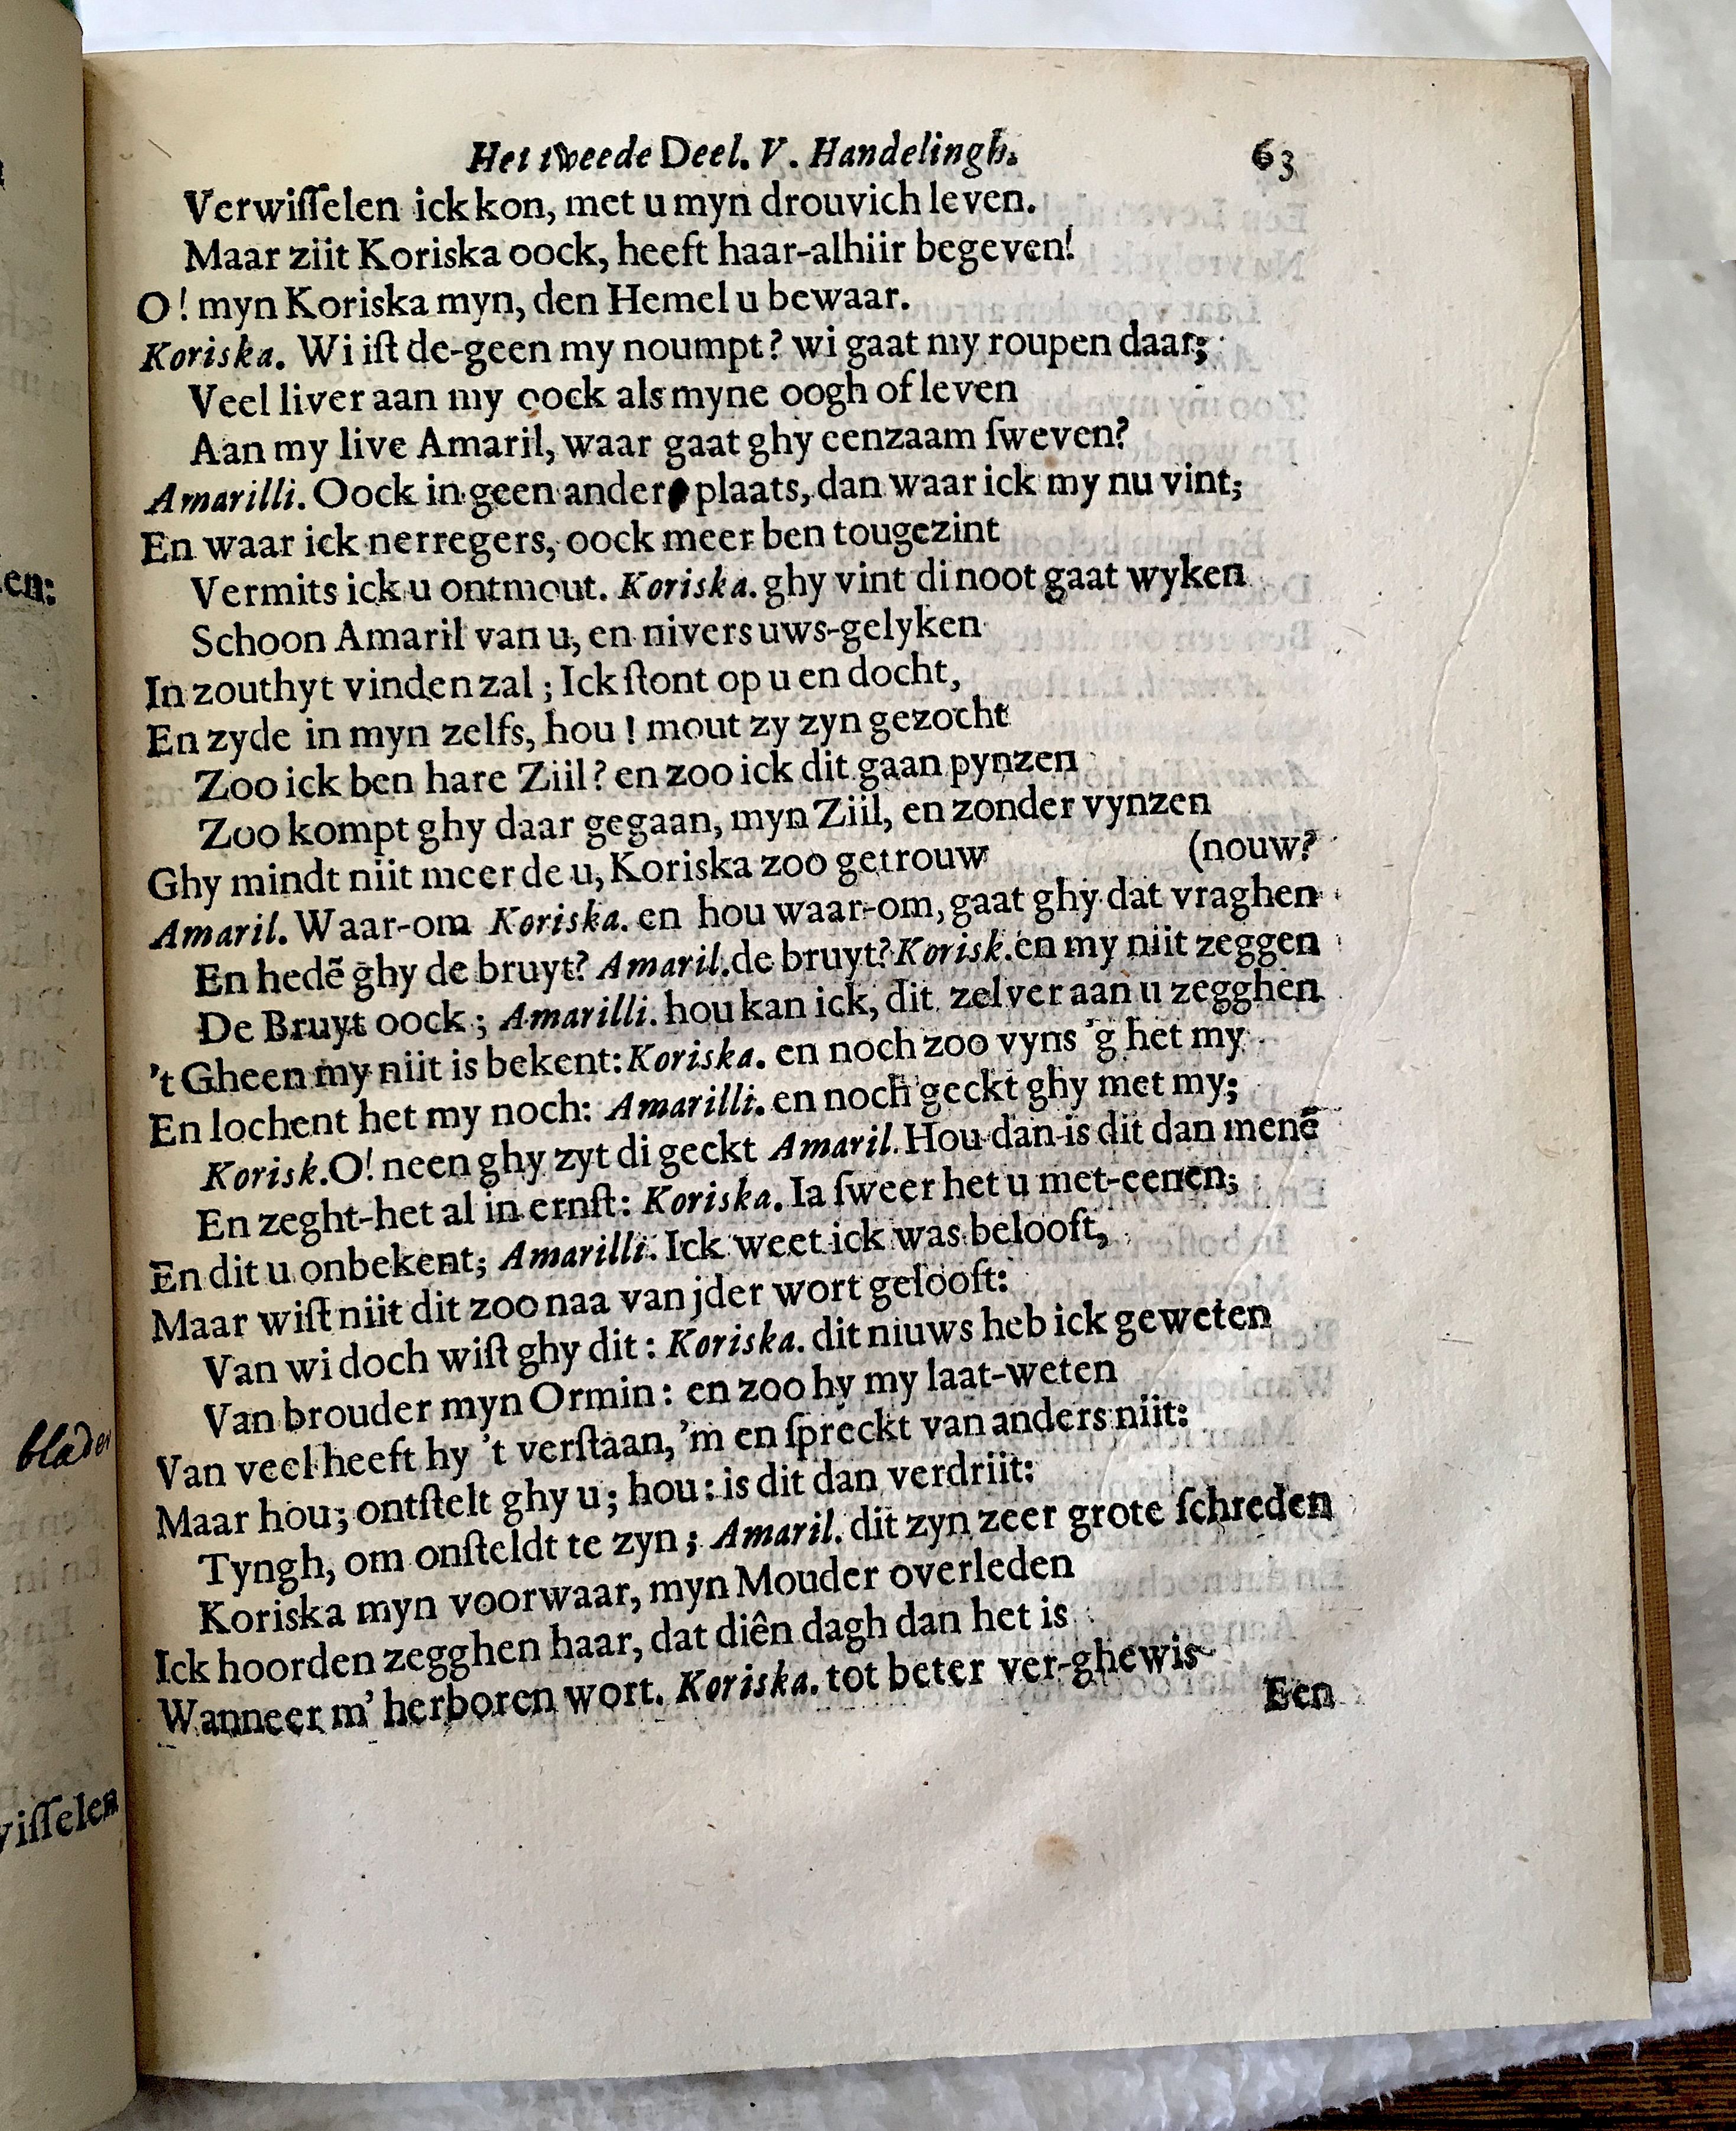 Het tweede Deel. V. Handelingh. 63
Verwiſſelen ick kon, met u myn drouvich leven.
Maar ziit Koriska oock, heeft haar-alhiir begeven!
O! myn Koriska myn, den Hemel u bewaar.
Koriska. Wi iſt de-geen my noumpt? wi gaat my roupen daar;
Veel liver aan my oock als myne oogh of leven
Aan my live Amaril, waar gaat ghy eenzaam ſweven?
Amarilli. Oock in geen ander plaats, dan waar ick my nu vint;
En waar ick nerregers, oock meer ben tougezint
Vermits ick u ontmout. Koriska. ghy vint di noot gaat wyken
Schoon Amaril van u, en nivers uws-gelyken
In zouthyt vinden zal; Ick ſtont op u en docht,
En zyde in myn zelfs, hou! mout zy zyn gezocht
Zoo ick ben hare Ziil? en zoo ick dit gaan pynzen
Zoo kompt ghy daar gegaan, myn Ziil, en zonder vynzen
Ghy mindt niit meer de u, Koriska zoo getrouw (nouw?
Amaril. Waar-om Koriska. en hou waar-om, gaat ghy dat vraghen
En hedē ghy de bruyt? Amaril. de bruyt? Korisk. en my niit zeggen
De Bruyt oock; Amarilli. hou kan ick, dit zelver aan u zegghen
't Gheen my niit is bekent: Koriska. en noch zoo vyns 'g het my
En lochent het my noch: Amarilli. en noch geckt ghy met my;
Korisk. O! neen ghy zyt di geckt Amaril. Hou dan is dit dan menē
En zeght-het al in ernſt: Koriska. Ia ſweer het u met-eenen;
En dit u onbekent; Amarilli. Ick weet ick was belooft,
Maar wiſt niit dit zoo naa van jder wort gelooft:
Van wi doch wiſt ghy dit: Koriska. dit niuws heb ick geweten
Van brouder myn Ormin: en zoo hy my laat-weten
Van veel heeft hy 't verſtaan, 'm en ſpreckt van anders niit:
Maar hou; ontſtelt ghy u; hou: is dit dan verdriit:
Tyngh, om onſteldt te zyn; Amaril. dit zyn zeer grote ſchreden
Koriska myn voorwaar, myn Mouder overleden
Ick hoorden zegghen haar, dat diên dagh dan het is
Wanneer m' herboren wort. Koriska. tot beter ver-ghewis-
Een
en:
blader
viſſelen